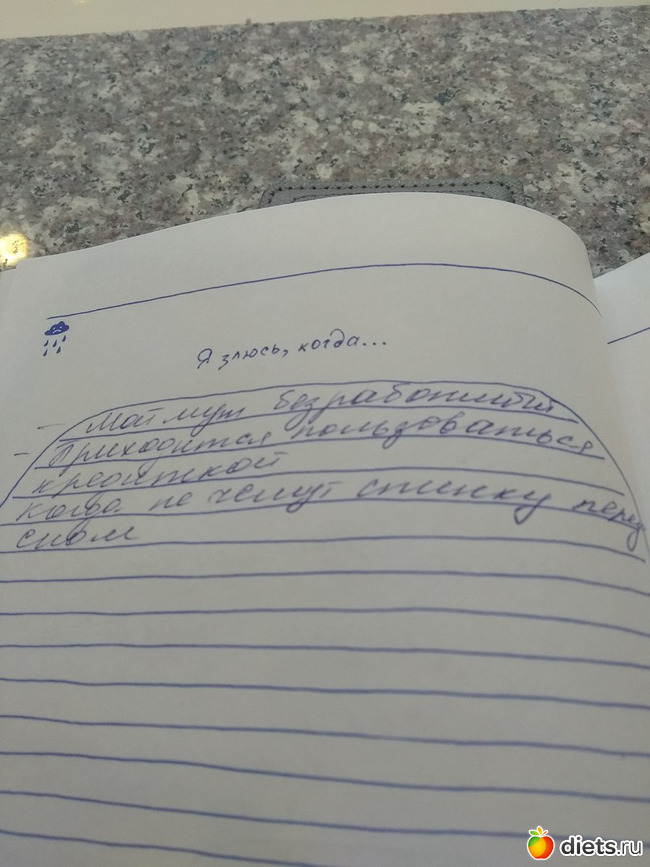 Я злюсь, когда...
- Мой муж безработный
- Приходится пользоваться
кредиткой
когда не чешут спинку перед
сном
diets.ru